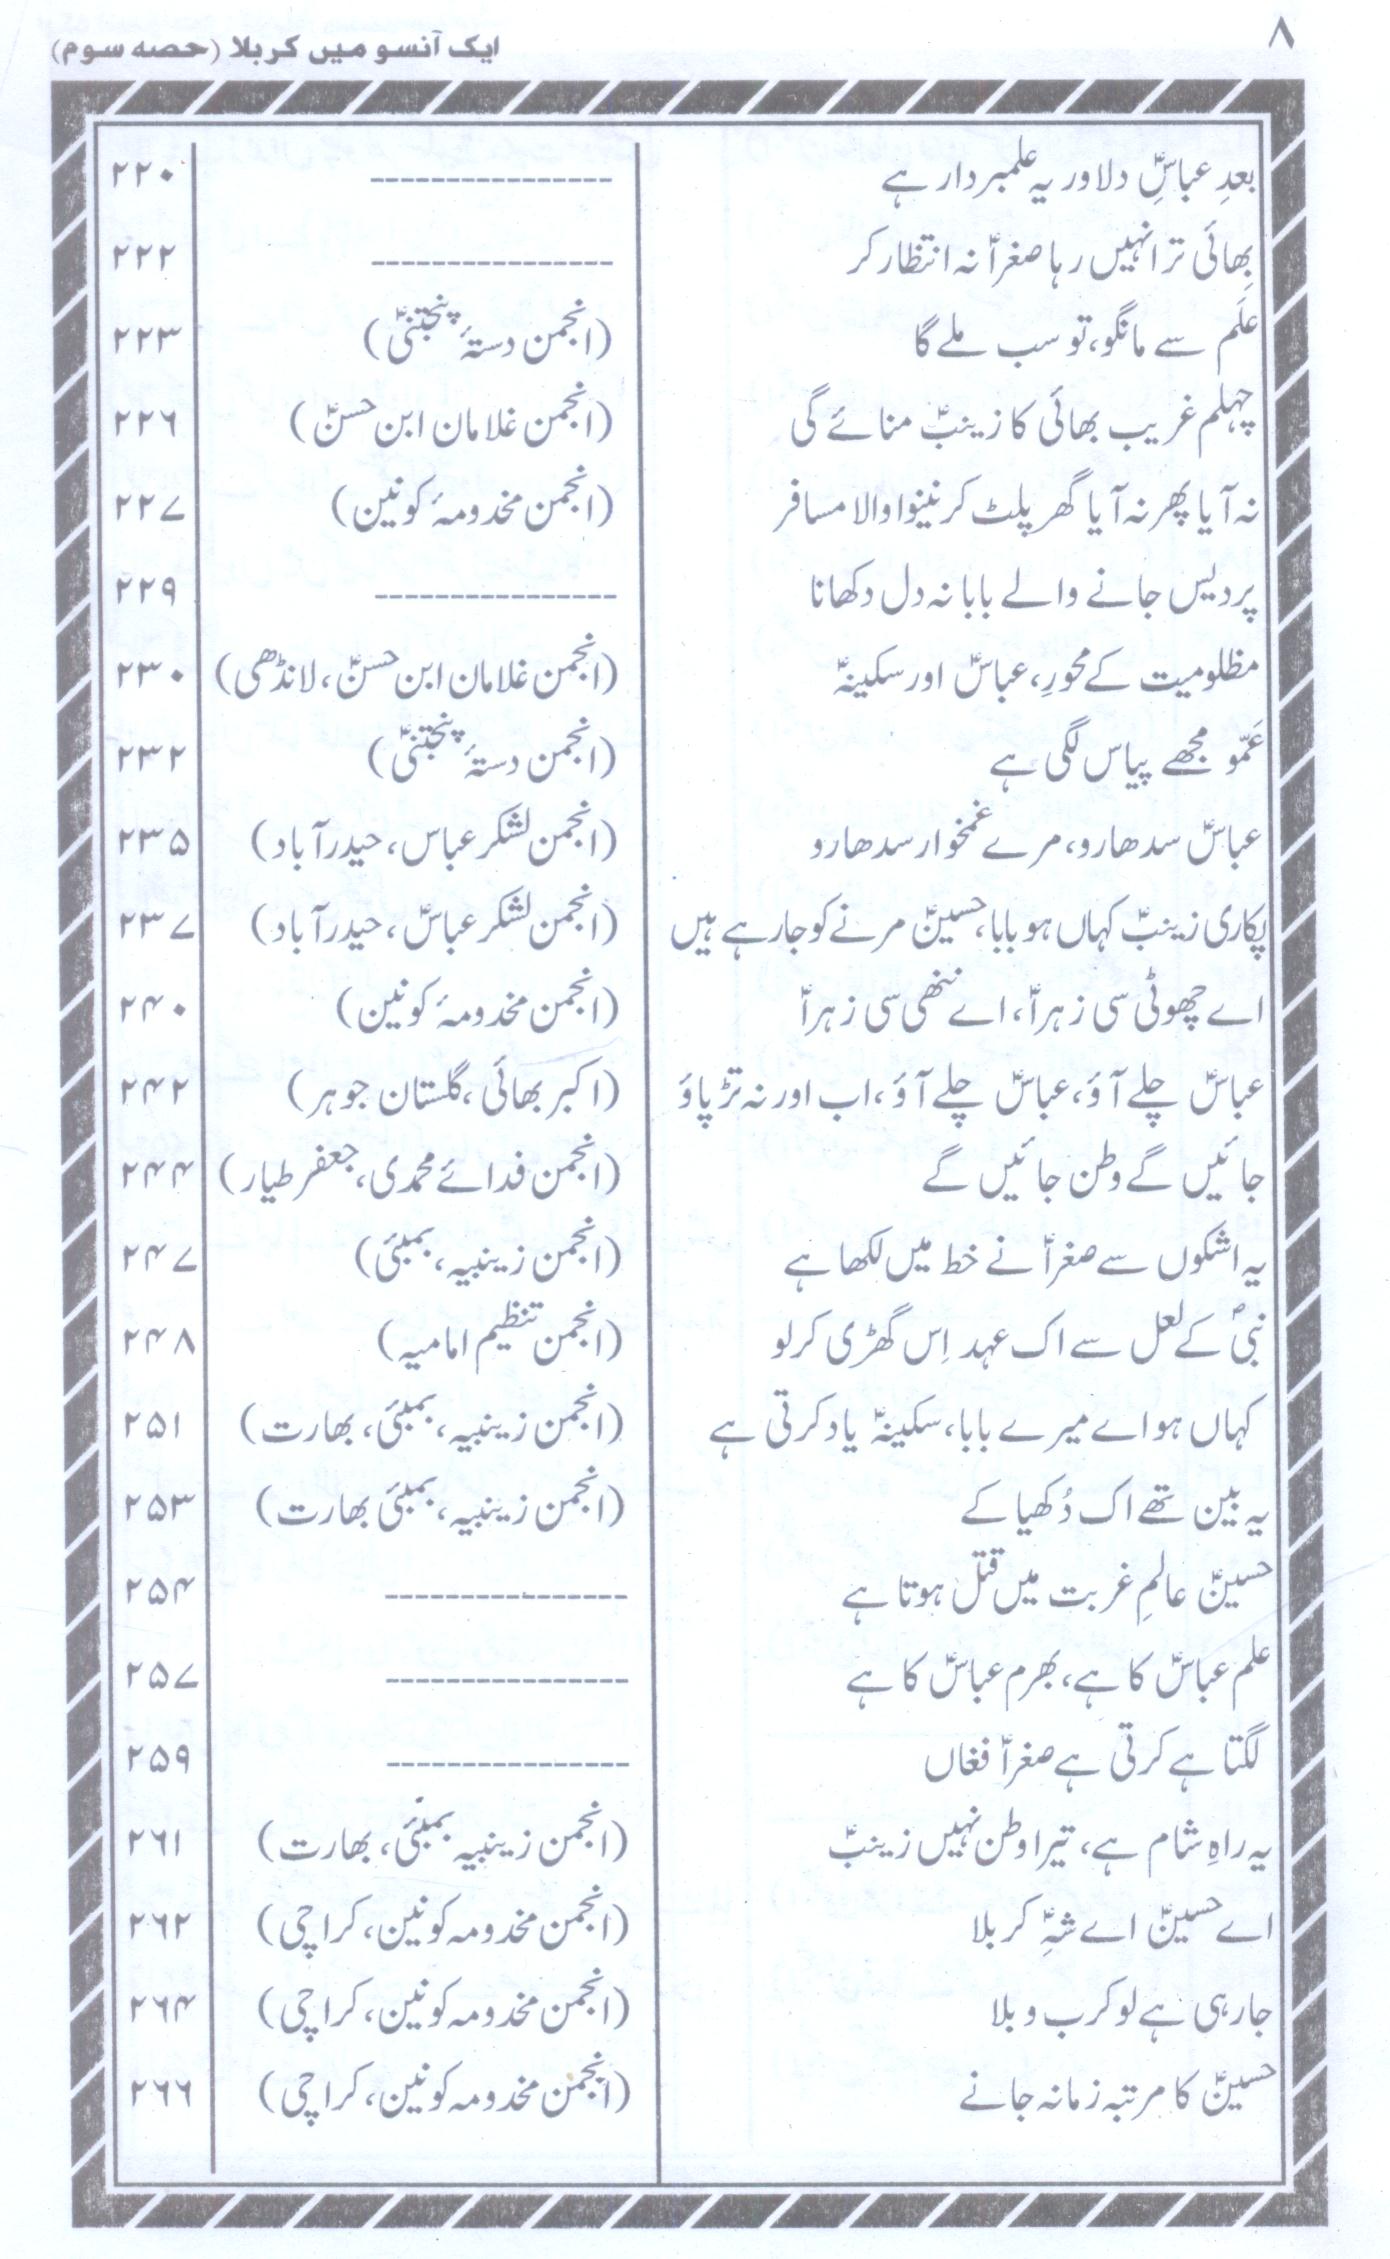 ۸ ایک آنسو میں کربلا (حصہ سوم)
بعدِ عباسؑ دلاور یہ علمبردار ہے ---------------- ۲۲۰
بھائی ترا نہیں رہا صغراؑ نہ انتظار کر ---------------- ۲۲۲
عَلَم سے مانگو، تو سب ملے گا (انجمن دستۂ پنجتنیؑ) ۲۲۳
چہلم غریب بھائی کا زینبؑ منائے گی (انجمن غلامان ابن حسنؑ) ۲۲۶
نہ آیا پھر نہ آیا گھر پلٹ کر نینوا والا مسافر (انجمن مخدومۂ کونین) ۲۲۷
پردیس جانے والے بابا نہ دل دکھانا ---------------- ۲۲۹
مظلومیت کے محور، عباسؑ اور سکینہؑ (انجمن غلامان ابن حسنؑ، لانڈھی) ۲۳۰
عَمّو مجھے پیاس لگی ہے (انجمن دستۂ پنجتنیؑ) ۲۳۲
عباسؑ سدھارو، مرے غمخوار سدھارو (انجمن لشکر عباس، حیدرآباد) ۲۳۵
پکاری زینبؑ کہاں ہو بابا، حسینؑ مرنے کو جا رہے ہیں (انجمن لشکر عباسؑ، حیدرآباد) ۲۳۷
اے چھوٹی سی زہراؑ، اے ننھی سی زہراؑ (انجمن مخدومۂ کونین) ۲۴۰
عباسؑ چلے آؤ، عباسؑ چلے آؤ، اب اور نہ تڑپاؤ (اکبر بھائی، گلستان جوہر) ۲۴۲
جائیں گے وطن جائیں گے (انجمن فدائے محمدی، جعفر طیار) ۲۴۴
یہ اشکوں سے صغراؑ نے خط میں لکھا ہے (انجمن زینبیہ، بمبئی) ۲۴۷
نبیؐ کے لعل سے اک عہد اِس گھڑی کرلو (انجمن تنظیم امامیہ) ۲۴۸
کہاں ہو اے میرے بابا، سکینہؑ یاد کرتی ہے (انجمن زینبیہ، بمبئی، بھارت) ۲۵۱
یہ بین تھے اک دُکھیا کے (انجمن زینبیہ، بمبئی بھارت) ۲۵۳
حسینؑ عالمِ غربت میں قتل ہوتا ہے ---------------- ۲۵۴
علم عباسؑ کا ہے، بھرم عباسؑ کا ہے ---------------- ۲۵۷
لگتا ہے کرتی ہے صغراؑ فغاں ---------------- ۲۵۹
یہ راہِ شام ہے، تیرا وطن نہیں زینبؑ (انجمن زینبیہ بمبئی، بھارت) ۲۶۱
اے حسینؑ اے شہِؑ کربلا (انجمن مخدومہ کونین، کراچی) ۲۶۲
جارہی ہے لو کرب و بلا (انجمن مخدومہ کونین، کراچی) ۲۶۴
حسینؑ کا مرتبہ زمانہ جانے (انجمن مخدومہ کونین، کراچی) ۲۶۶